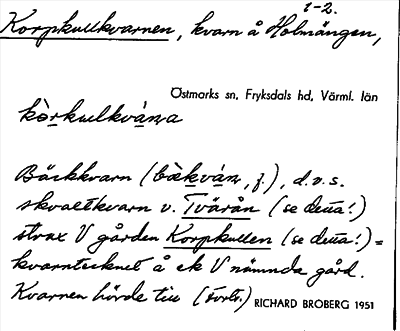 1-2.
Korpkullkvarnen, kvarn å Holmängen,
Östmarks sn, Fryksdals hd, Värml. län
kòrkulkváṇa
Bäckkvarn (bèkváṇ, f.), d.v.s.
skvaltkvarn v. Tvärån (se detta!)
strax V gården Korpkullen (se detta!) =
kvarntecknet å ek V nämnda gård.
Kvarnen hörde till (forts.) RICHARD BROBERG 1951